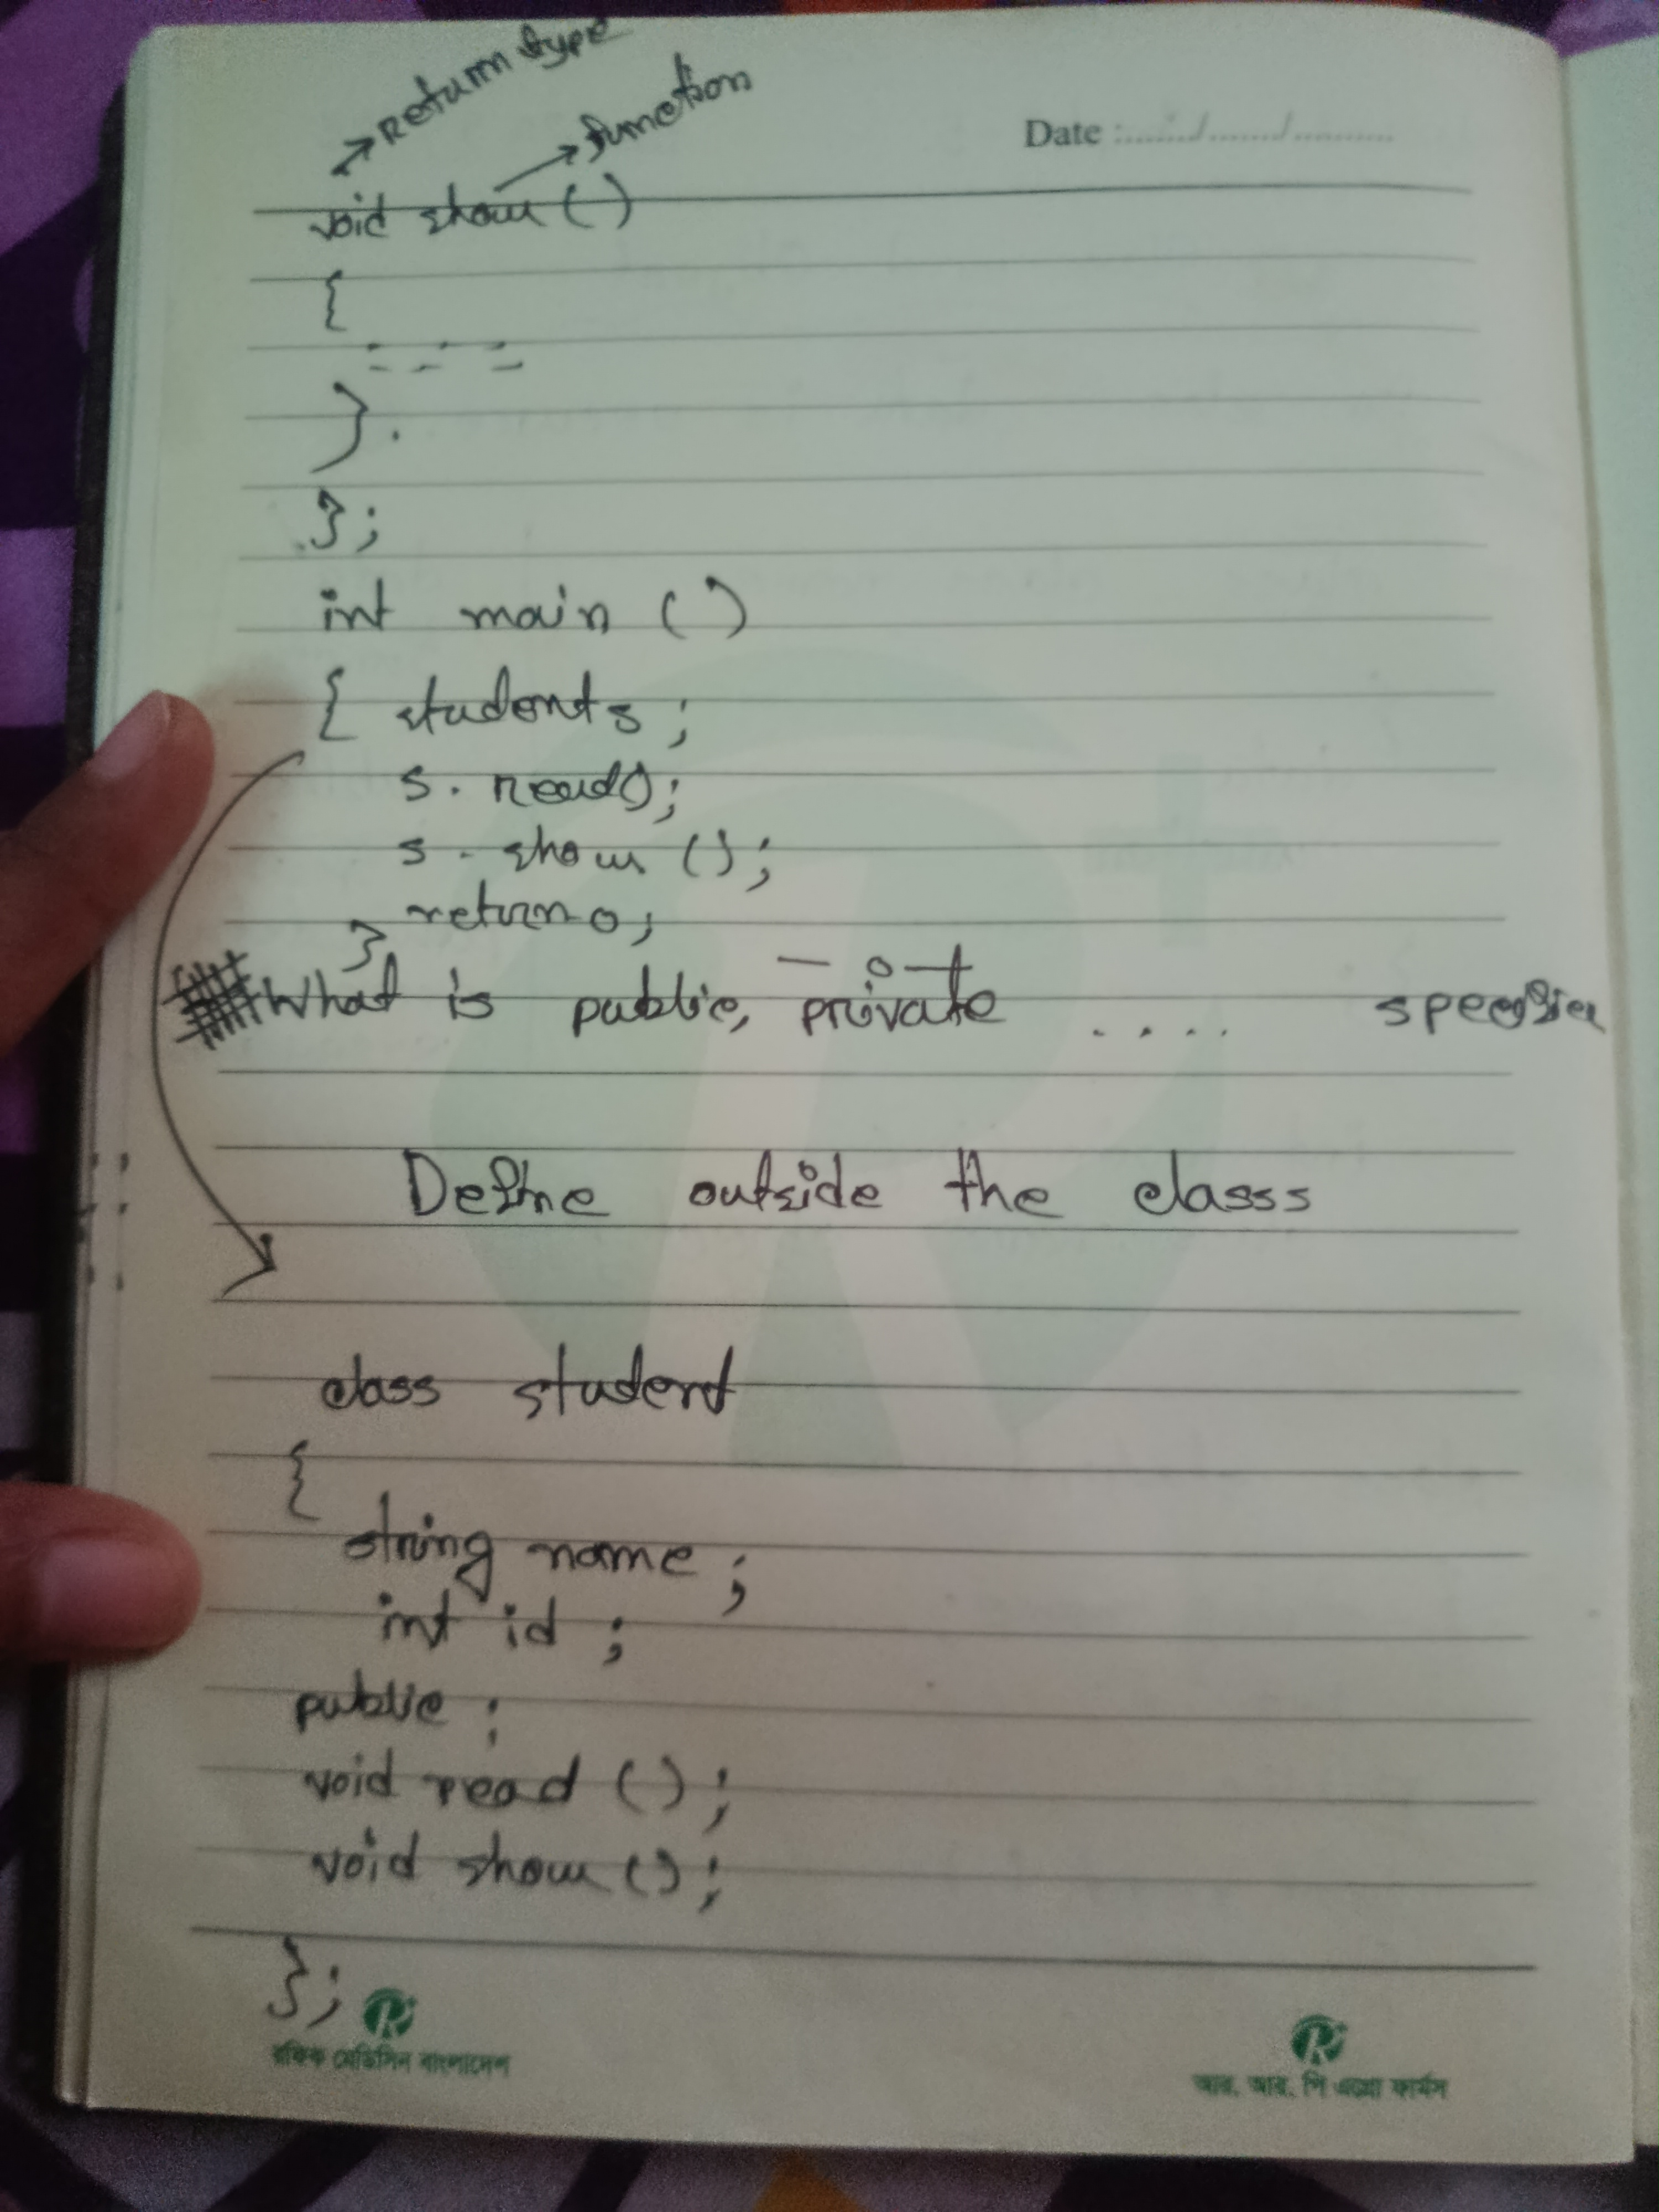 return type
function
Date :....../......./..........
void show ( )
{
- - -
}.
};
int main ( )
{ students ;
s. read();
s. show ();
return 0;
}
— o —
What is public, private .... specifier
Define outside the classs
class student
{
string name ;
int id ;
public :
void read () ;
void show () ;
};
R
R
আর. আর. পি এগ্রো ফার্মস